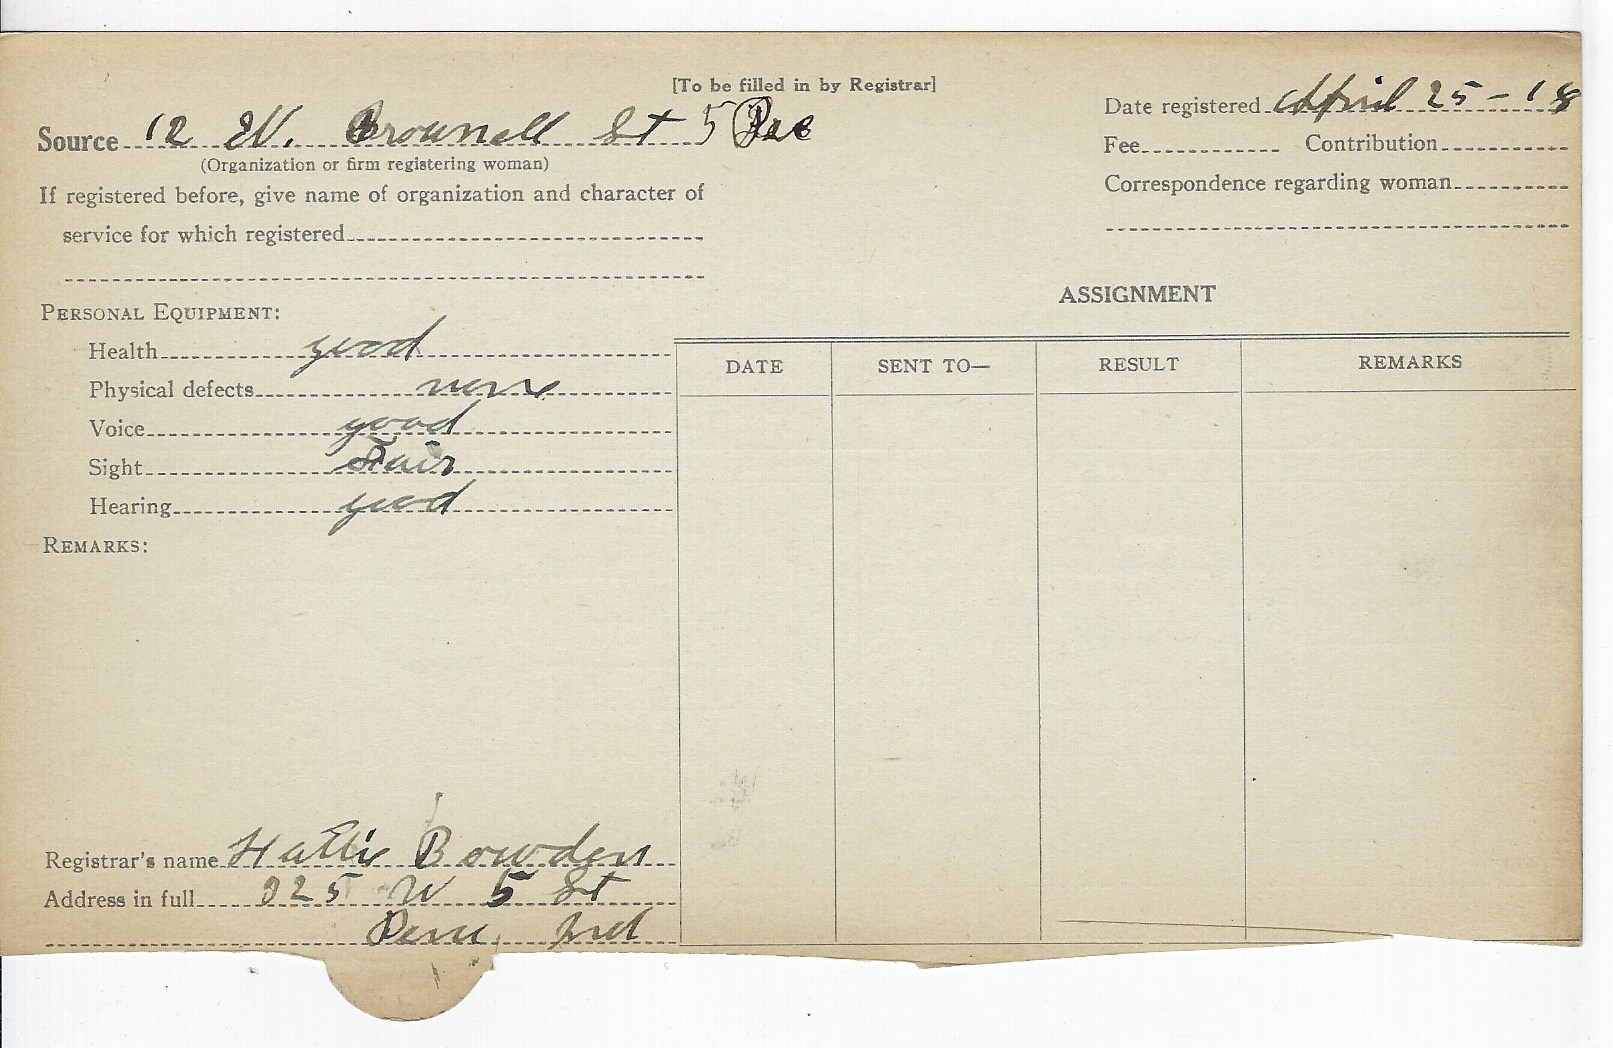 [To be filled in by Registrar]
Date registered April 25-18
Source 12 W. Brownell St 5 Pre
(Organization or firm registering woman)
Fee Contribution
If registered before, give name of organization and character of
service for which registered
Correspondence regarding woman
ASSIGNMENT
PERSONAL EQUIPMENT:
Health good
Physical defects none
Voice good
Sight Fair
Hearing good
REMARKS:
DATE SENT TO— RESULT REMARKS
Registrar's name Hattie Bowden
Address in full 325 W 5 St
Peru, Ind